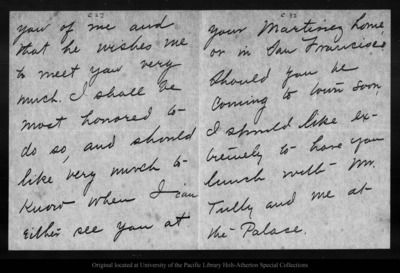 you of me and
that he wishes me
to meet you very
much. I shall be
most honored to-
do so, and should
like very much to-
know when I can
either see you at
your Martinez home,
or in San Francisco
should you be
coming to town soon,
I should like ex-
tremely to have you
lunch with Mr.
Tully and me at
the Palace.
Original located at University of the Pacific Library Holt-Atherton Special Collections